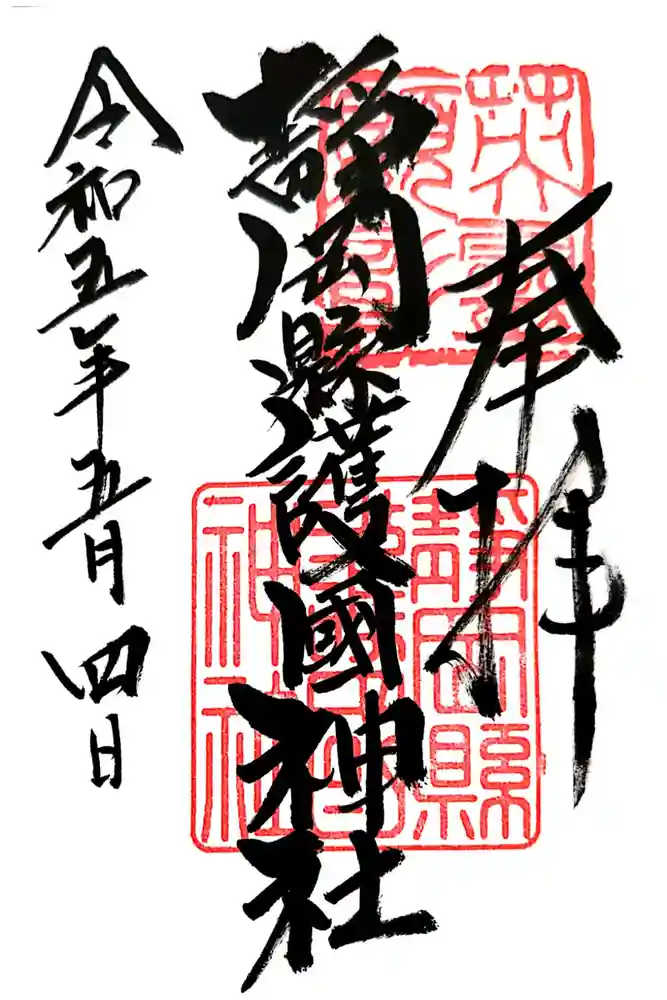 奉拝
靜岡縣護國神社
令和五年五月四日
英靈
靜岡縣
神社